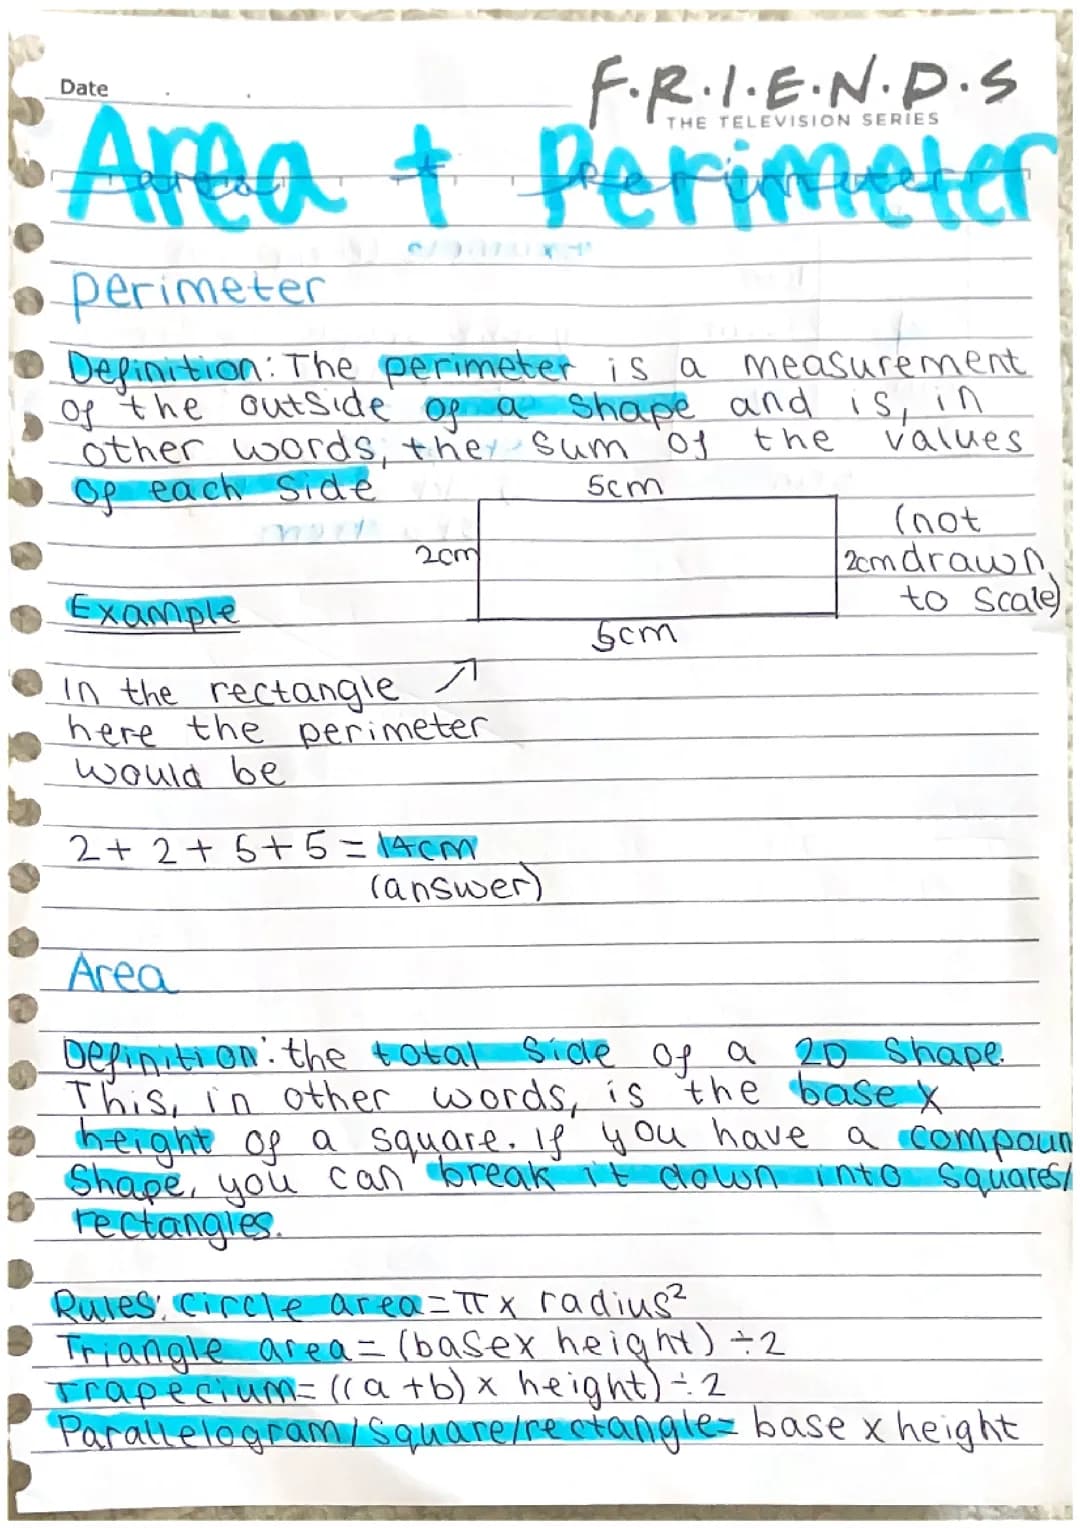 Date
F.R.I.E.N.D.S
THE TELEVISION SERIES
Area + Perimeter
perimeter
Definition: The perimeter is a measurement
of the outside of a shape and is, in
other words, the sum of the values
of each side
5cm
2cm
2cm
(not
drawn
to scale)
5cm
Example
In the rectangle
here the perimeter
would be
2 + 2 + 5 + 5 = 14cm
(answer)
Area
Definition: the total side of a 2D shape.
This, in other words, is the base x
height of a square. If you have a compoun
shape, you can break it down into squares/
rectangles.
Rules: circle area = π x radius²
Triangle area = (base x height) ÷ 2
Trapecium = ((a + b) x height) ÷ 2
Parallelogram/square/rectangle = base x height